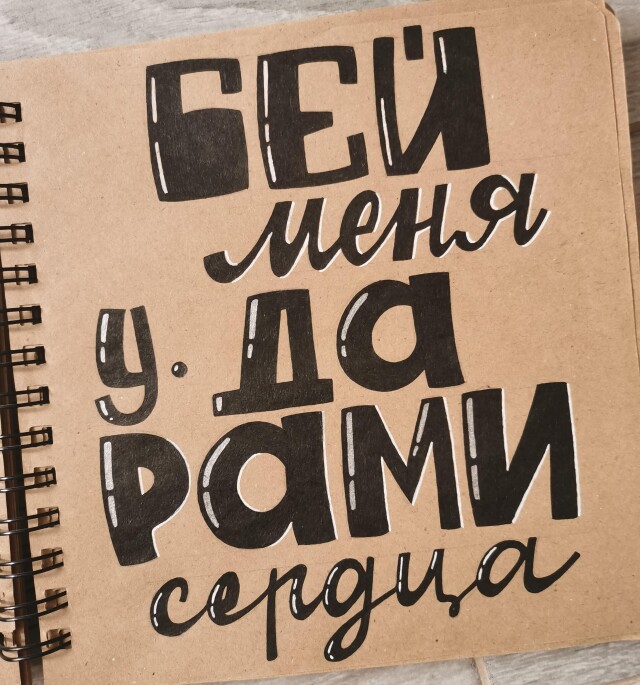 БЕЙ
меня
у. Да
РАМИ
сердца